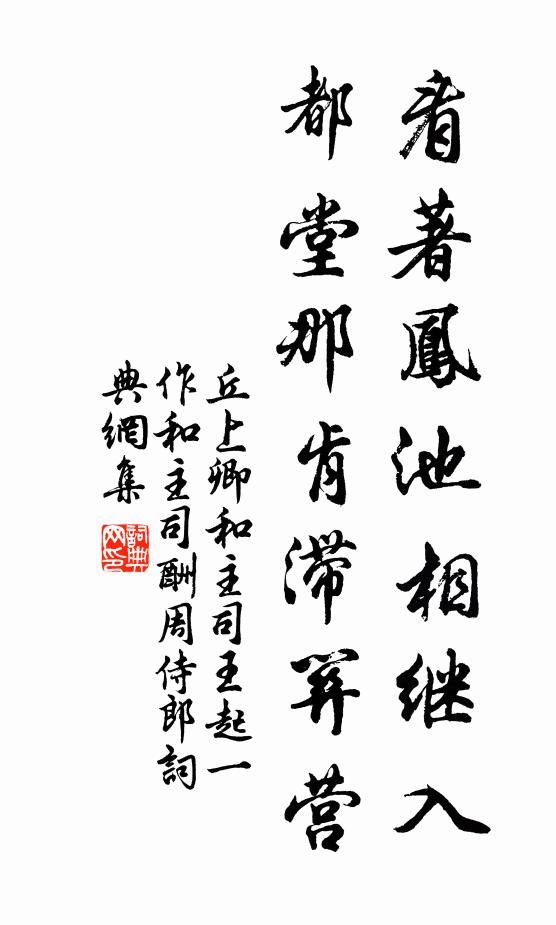 看著鳳池相继入
都堂那肯滞関营
丘上卿和主司王起一
作和主司酬周侍郎詞
典網集
詞典网印